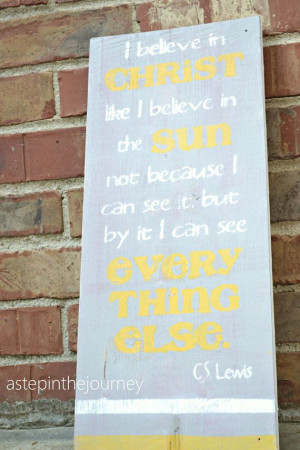 I believe in
CHRIST
like I believe in
the SUN
not because I
can see it, but
by it I can see
EVERY
THING
ELSE.
C.S. Lewis
astepinthejourney